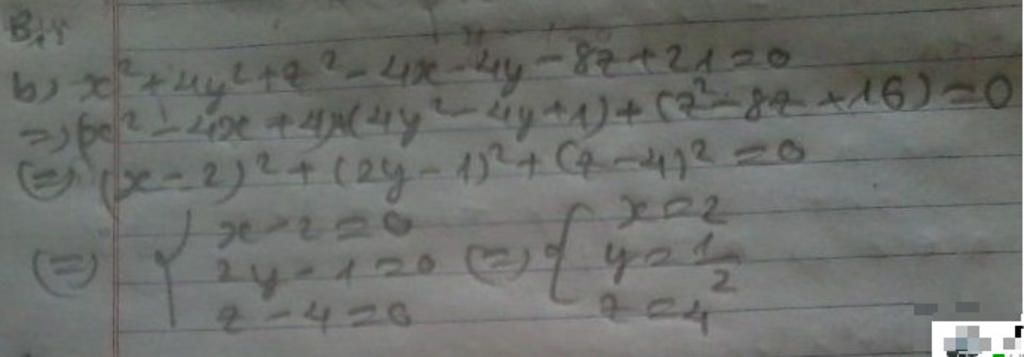 b) x² + 4y² + z² - 4x - 4y - 8z + 21 = 0
=> (x² - 4x + 4) + (4y² - 4y + 1) + (z² - 8z + 16) = 0
(=) (x - 2)² + (2y - 1)² + (z - 4)² = 0
(=) { x - 2 = 0 (=) { x = 2
2y - 1 = 0 y = 1/2
z - 4 = 0 z = 4